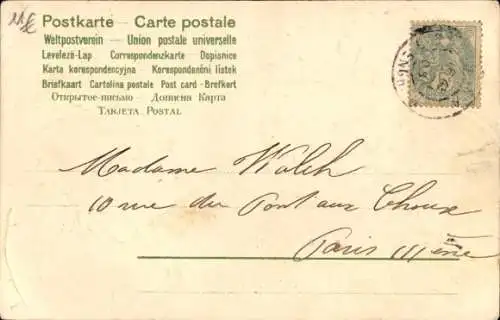 Postkarte - Carte postale
Weltpostverein - Union postale universelle
Levelező-Lap - Correspondenzkarte - Dopisnice
Karta korespondencyjna - Korespondenční lístek
Briefkaart - Cartolina postale - Post card - Brefkort
Открытое-письмо - Дописна Карта
Tarjeta Postal
Madame Walch
10 rue du Pont aux Choux
Paris IIIème